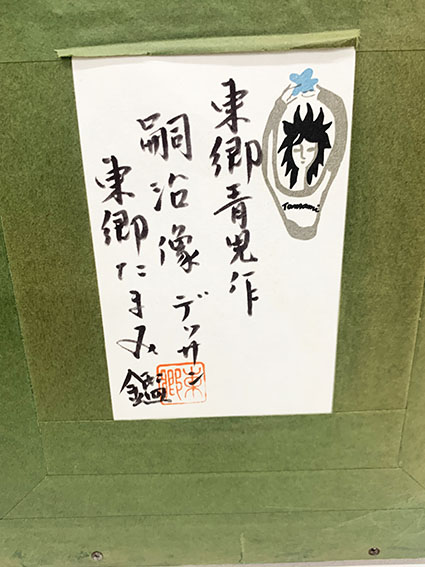 東郷青児作
嗣治像 デッサン
東郷たまみ
鑑
Tamami
東郷